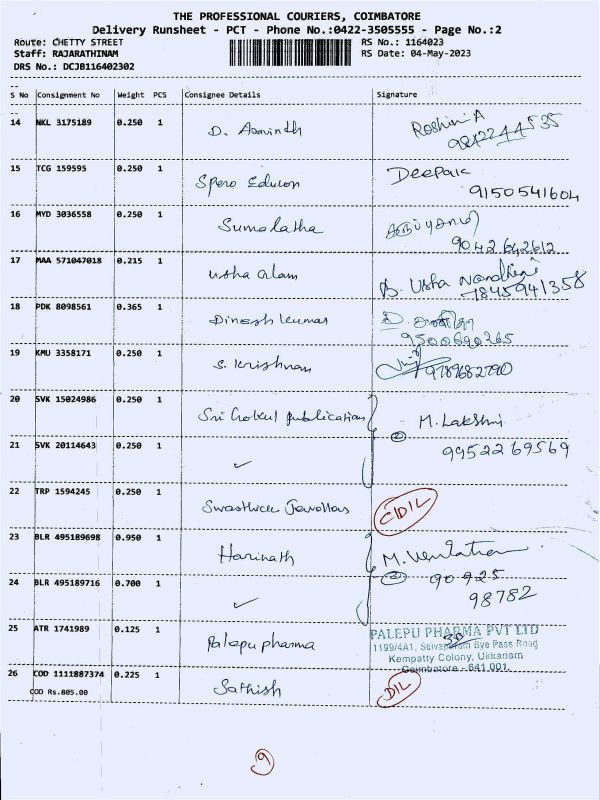 THE PROFESSIONAL COURIERS, COIMBATORE
Delivery Runsheet - PCT - Phone No.:0422-3505555 - Page No.:2
Route: CHETTY STREET RS No.: 1164023
Staff: RAJARATHINAM RS Date: 04-May-2023
DRS No.: DCJB116402302
S No Consignment No Weight PCS Consignee Details Signature
14 NKL 3175189 0.250 1 D. Aravinth Roshini A
15 TCG 159595 0.250 1 Spero Deepak
9150541604
16 MYD 3036558 0.250 1 Sumalatha
9042642612
17 MAA 571047018 0.215 1 Usha B. Usha Nandhini
7845941358
18 PDK 8098561 0.365 1 Dinesh kumar
9500690265
19 KMU 3358171 0.250 1 S. Krishnan 9789682790
20 SVK 15024986 0.250 1 Sri Gokul publication M. Lakshmi
21 SVK 20114643 0.250 1 ✓ 9952269569
22 TRP 1594245 0.250 1
23 BLR 495189698 0.950 1 Harinath
90925
24 BLR 495189716 0.700 1 ✓ 98782
25 ATR 1741989 0.125 1 Palepu pharma PALEPU PHARMA PVT LTD
Kempatty Colony, Ukkadam
Coimbatore - 641 001.
26 COD 1111887374 0.225 1 Sathish DIL
COD Rs.805.00
9